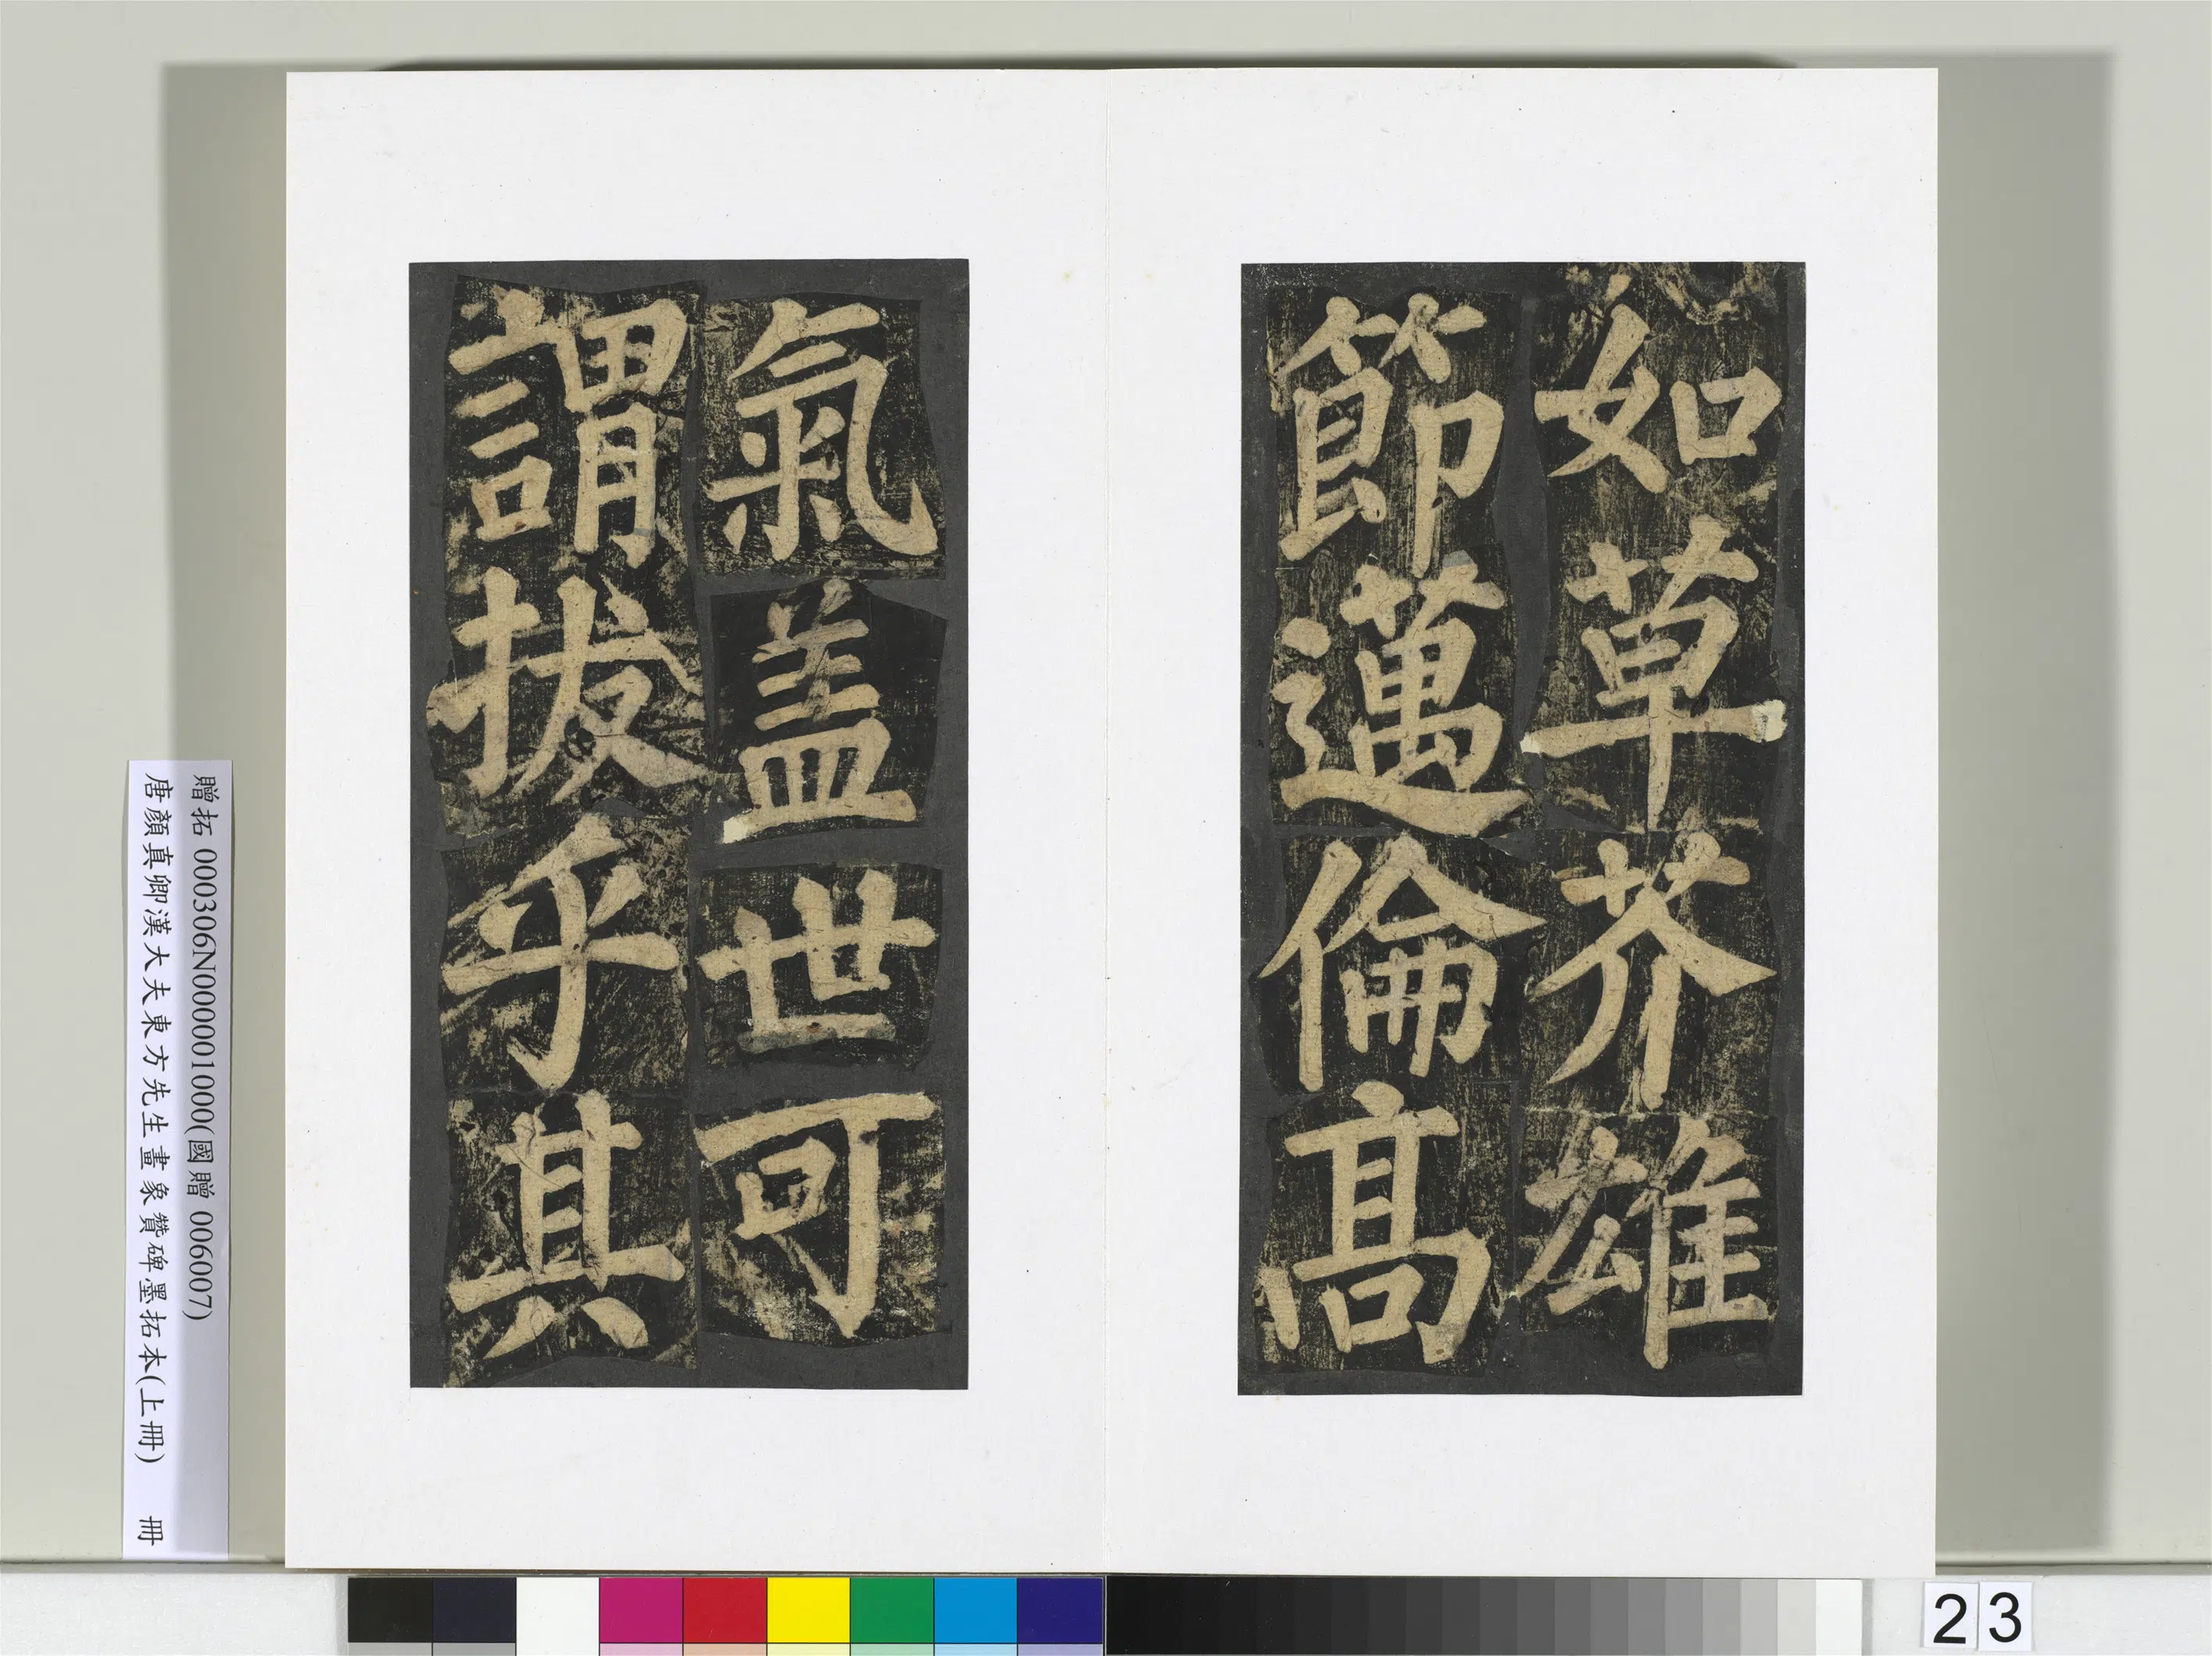 如草芥雄
節邁倫高
氣盖世可
謂拔乎其
贈拓 000306N000001000(國贈 006007)
唐顏真卿漢大夫東方先生畫象贊碑墨拓本(上冊) 冊
23